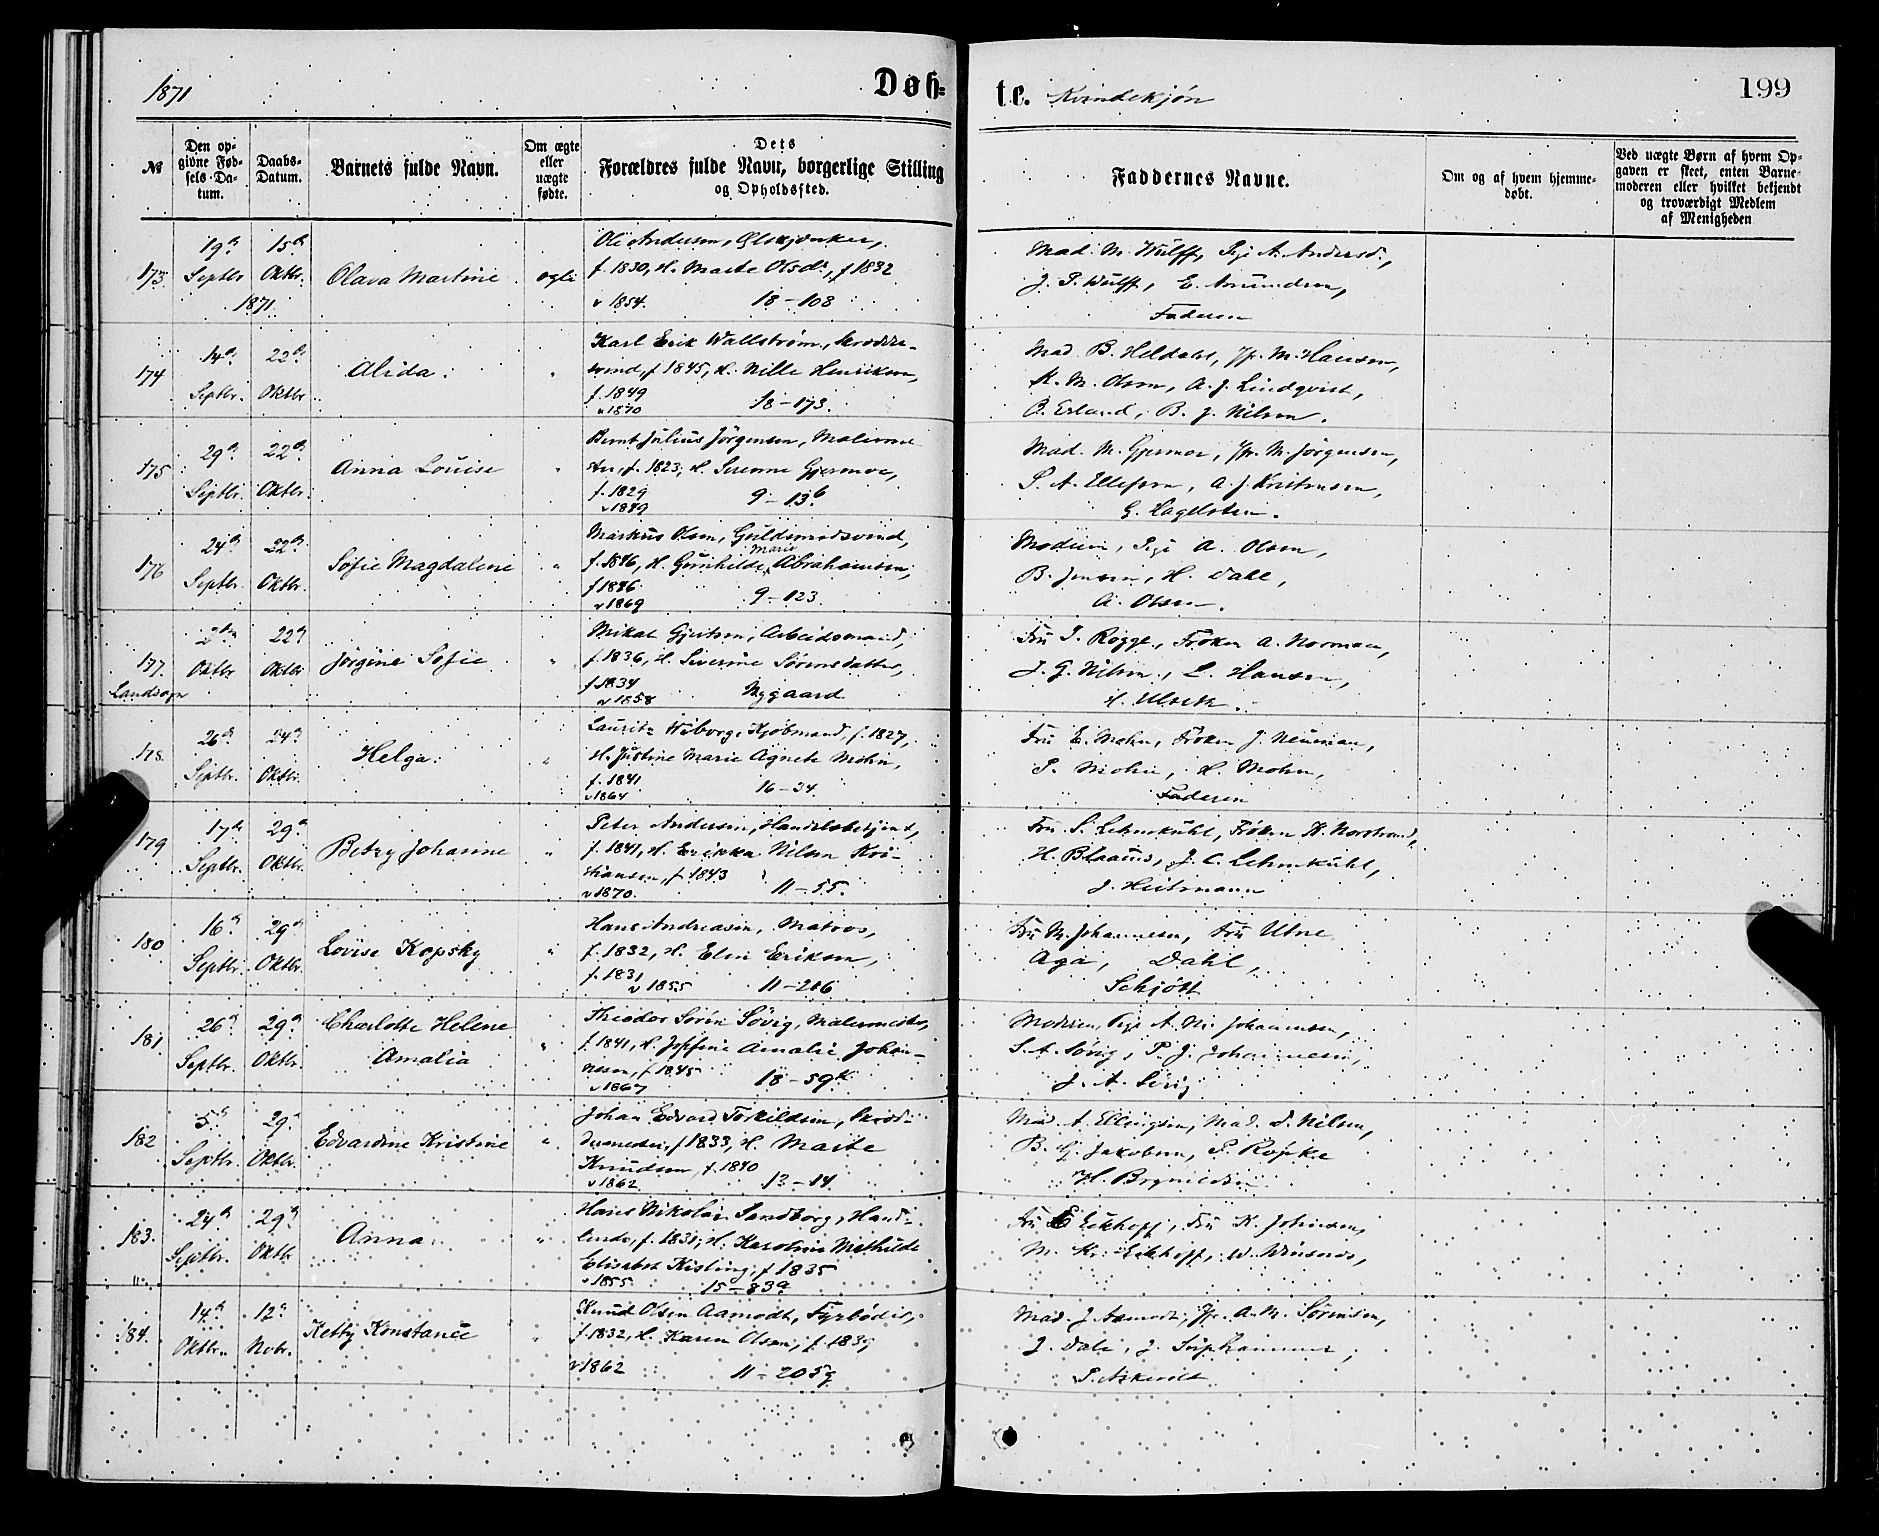 1871
Døb=
te. Kvindekjøn
199
№
Den op-
givne Fød-
sels Da-
tum.
Daabs-
Datum.
Barnets fulde Navn.
Om ægte
eller
uægte
fødte.
Dets
Forældres fulde Navn, borgerlige Stilling
og Opholdssted.
Faddernes Navne.
Om og af hvem hjemme-
døbt.
Ved uægte Børn af hvem Op-
gaven er skeet, enten Barne-
moderen eller hvilket bekjendt
og troværdigt Medlem
af Menigheden
173
19de Septbr
15de Oktbr.
1871
Olava Martine
ægte
Ole Andersen, Ølskjænker,
f. 1830, H. Marte Olsdr, f 1832
v 1854. 18-108
Mad. M. Wulff, Pige A. Andersd.,
J. P. Wulff, E. Amundsen,
Faderen
174
14de Septbr.
22de Oktbr
Alida.
"
Karl Erik Wallstrøm, Skrædder-
svend, f 1845, H. Nille Henriksen,
f. 1849
v 1870 18-173.
Mad. B. Heldahl, Jfr. M. Hansen,
K. M. Olsen, A. J. Lindqvist,
O. Erland, B. J. Nilsen.
175
29de Septbr.
22de Oktbr.
Anna Louise
"
Bernt Julius Jørgensen, Malerme-
ster, f. 1823, H. Serenne Gjermoe,
f. 1829
v 1849 9-13b
Mad. M. Gjermoe, Jfr. M. Jørgensen,
S. A. Ellefsen, A. J. Kristensen,
G. Hagelsteen.
176
24de Septbr.
22de Oktbr.
Sofie Magdalene
"
Markus Olsen, Guldsmedsvend,
f. 1846, H. Gunhilde Marie Abrahamsen,
f 1846
v 1869 9-123.
Moderen, Pige A. Olsen,
B. Jensen, H. Dahl,
A. Olsen.
177.
Landsogn
2den Oktbr
22de Oktbr
Jørgine Sofie
"
Mikal Gjertsen, Arbeidsmand,
f. 1836, H. Severine Sørensdatter,
f 1834
v 1858 Nygaard
Fru S. Rogge, Frøken A. Norman,
J. G. Nilsen, L. Hansen,
H. Ulrik.
178.
26de Septbr.
24de Oktbr.
Helga.
"
Lauritz Wiborg, Kjøbmand, f. 1827,
H. Justine Marie Agnete Mohn,
f. 1841
v 1864 16-34.
Fru E. Mohn, Frøken J. Neuman,
P. Mohn, H. Mohn,
Faderen
179
17de Septbr.
29de Oktbr.
Betzy Johanne
"
Peter Andersen, Handelsbetjent,
f. 1841, H. Erikka Nilsen Kri-
stiansen, f 1843
v 1870. 11-55.
Fru S. Lehmkuhl, Frøken K. Norstrand,
H. Blaauw, J. C. Lehmkuhl,
J. Heitmann
180
16de Septbr.
29de Oktbr.
Lovise Kopsky
"
Hans Andreasen, Matros,
f. 1832, H. Elen Eriksen,
f. 1831
v 1855 11-206
Fru M. Johannesen, Fru Utne
Aga, Dahl,
Schjøtt
181
26de Septbr.
29de Oktbr.
Charlotte Helene
Amalia
"
Theodor Sørin Søvig, Malermester,
f. 1841, H. Josefine Amalie Johan-
nesen, f 1845
v 1867 18-59k
Moderen, Pige A. M. Johannesen,
S. A. Søvig, P. J. Johannesen,
J. A. Søvig
182
5te Septbr.
29de Oktbr.
Edvardine Kristine
"
Johan Edvard Torkildsen, Skræd-
dermester, f 1833, H. Marte
Knudsen, f. 1840
v 1862 13-14.
Mad. A. Ellingsen, Mad. S. Nilsen,
B. G. Jakobsen, P. Røpke
H. Brynildsen
183.
24de Septbr.
29de Oktbr
Anna.
"
Hans Nikolai Sandborg, Hand-
lende, f. 1831, H. Karoline Mathilde
Elisabet Kisling, f 1835
v 1855 15-83a
Fru E Eckhoff, Fru K. Johnsen,
M. Kr. Eckhoff, W. Wiisnes,
184.
14de Oktbr.
12te Novbr.
Ketty Konstance
"
Knud Olsen Aamodt, Fyrbøder,
f. 1832, H. Karen Olsen, f. 1839
v 1862 11-205g
Mad. J. Aamodt, Jfr. A. M. Sørensen,
J. Dale, J. Seiphammer,
P. Askevold